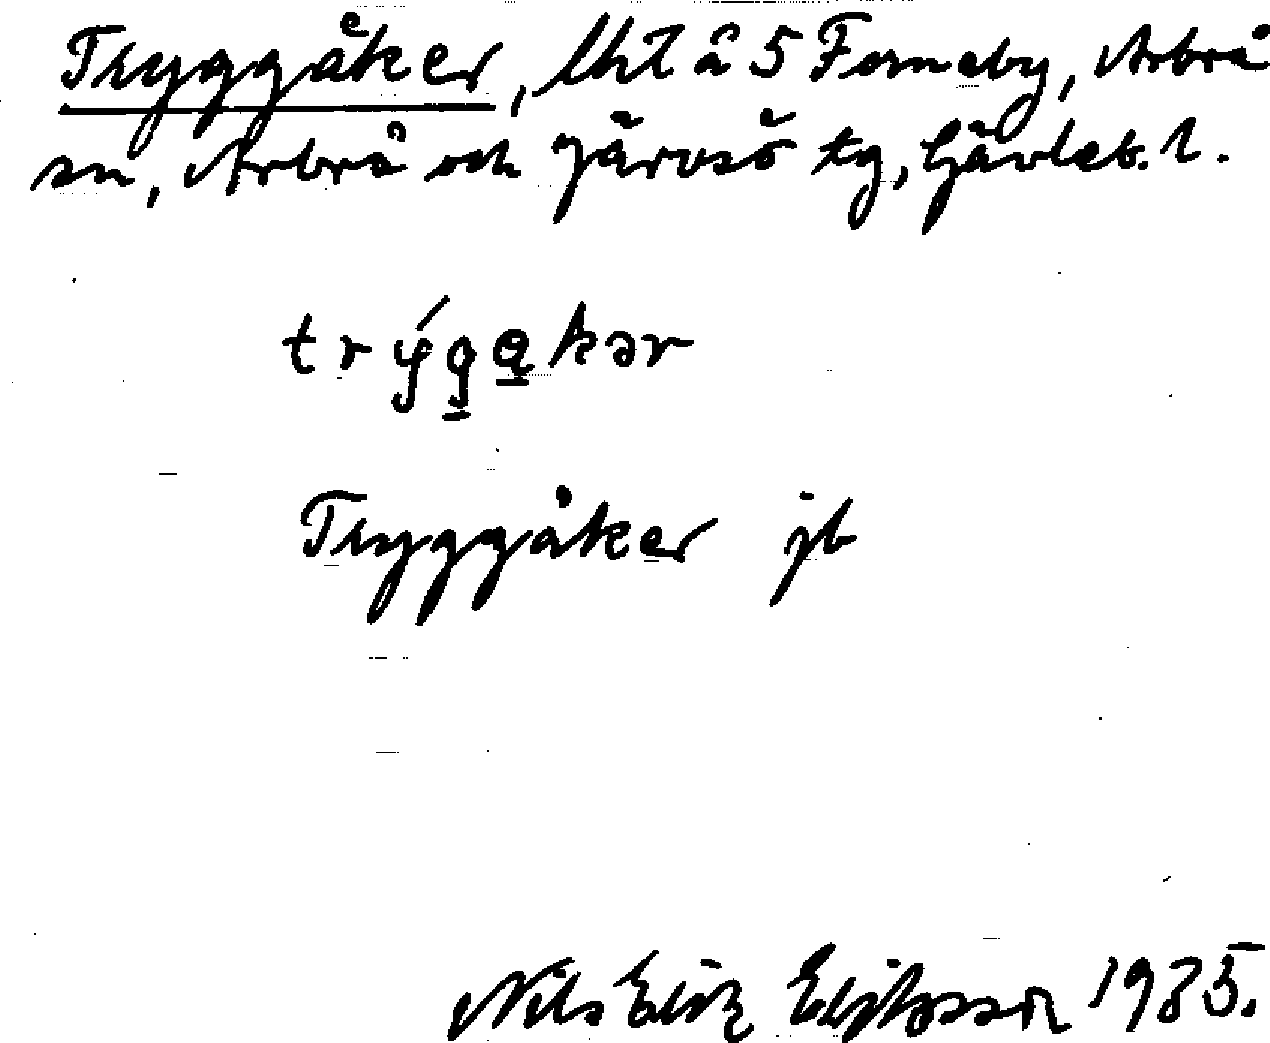 Tryggåker, lht å 5 Forneby, Arbrå
sn, Arbrå och Järvsö tg, Gävleb. l.
trýg̱a̱kər
Tryggåker jb
Nils Erik Eliasson 1935.